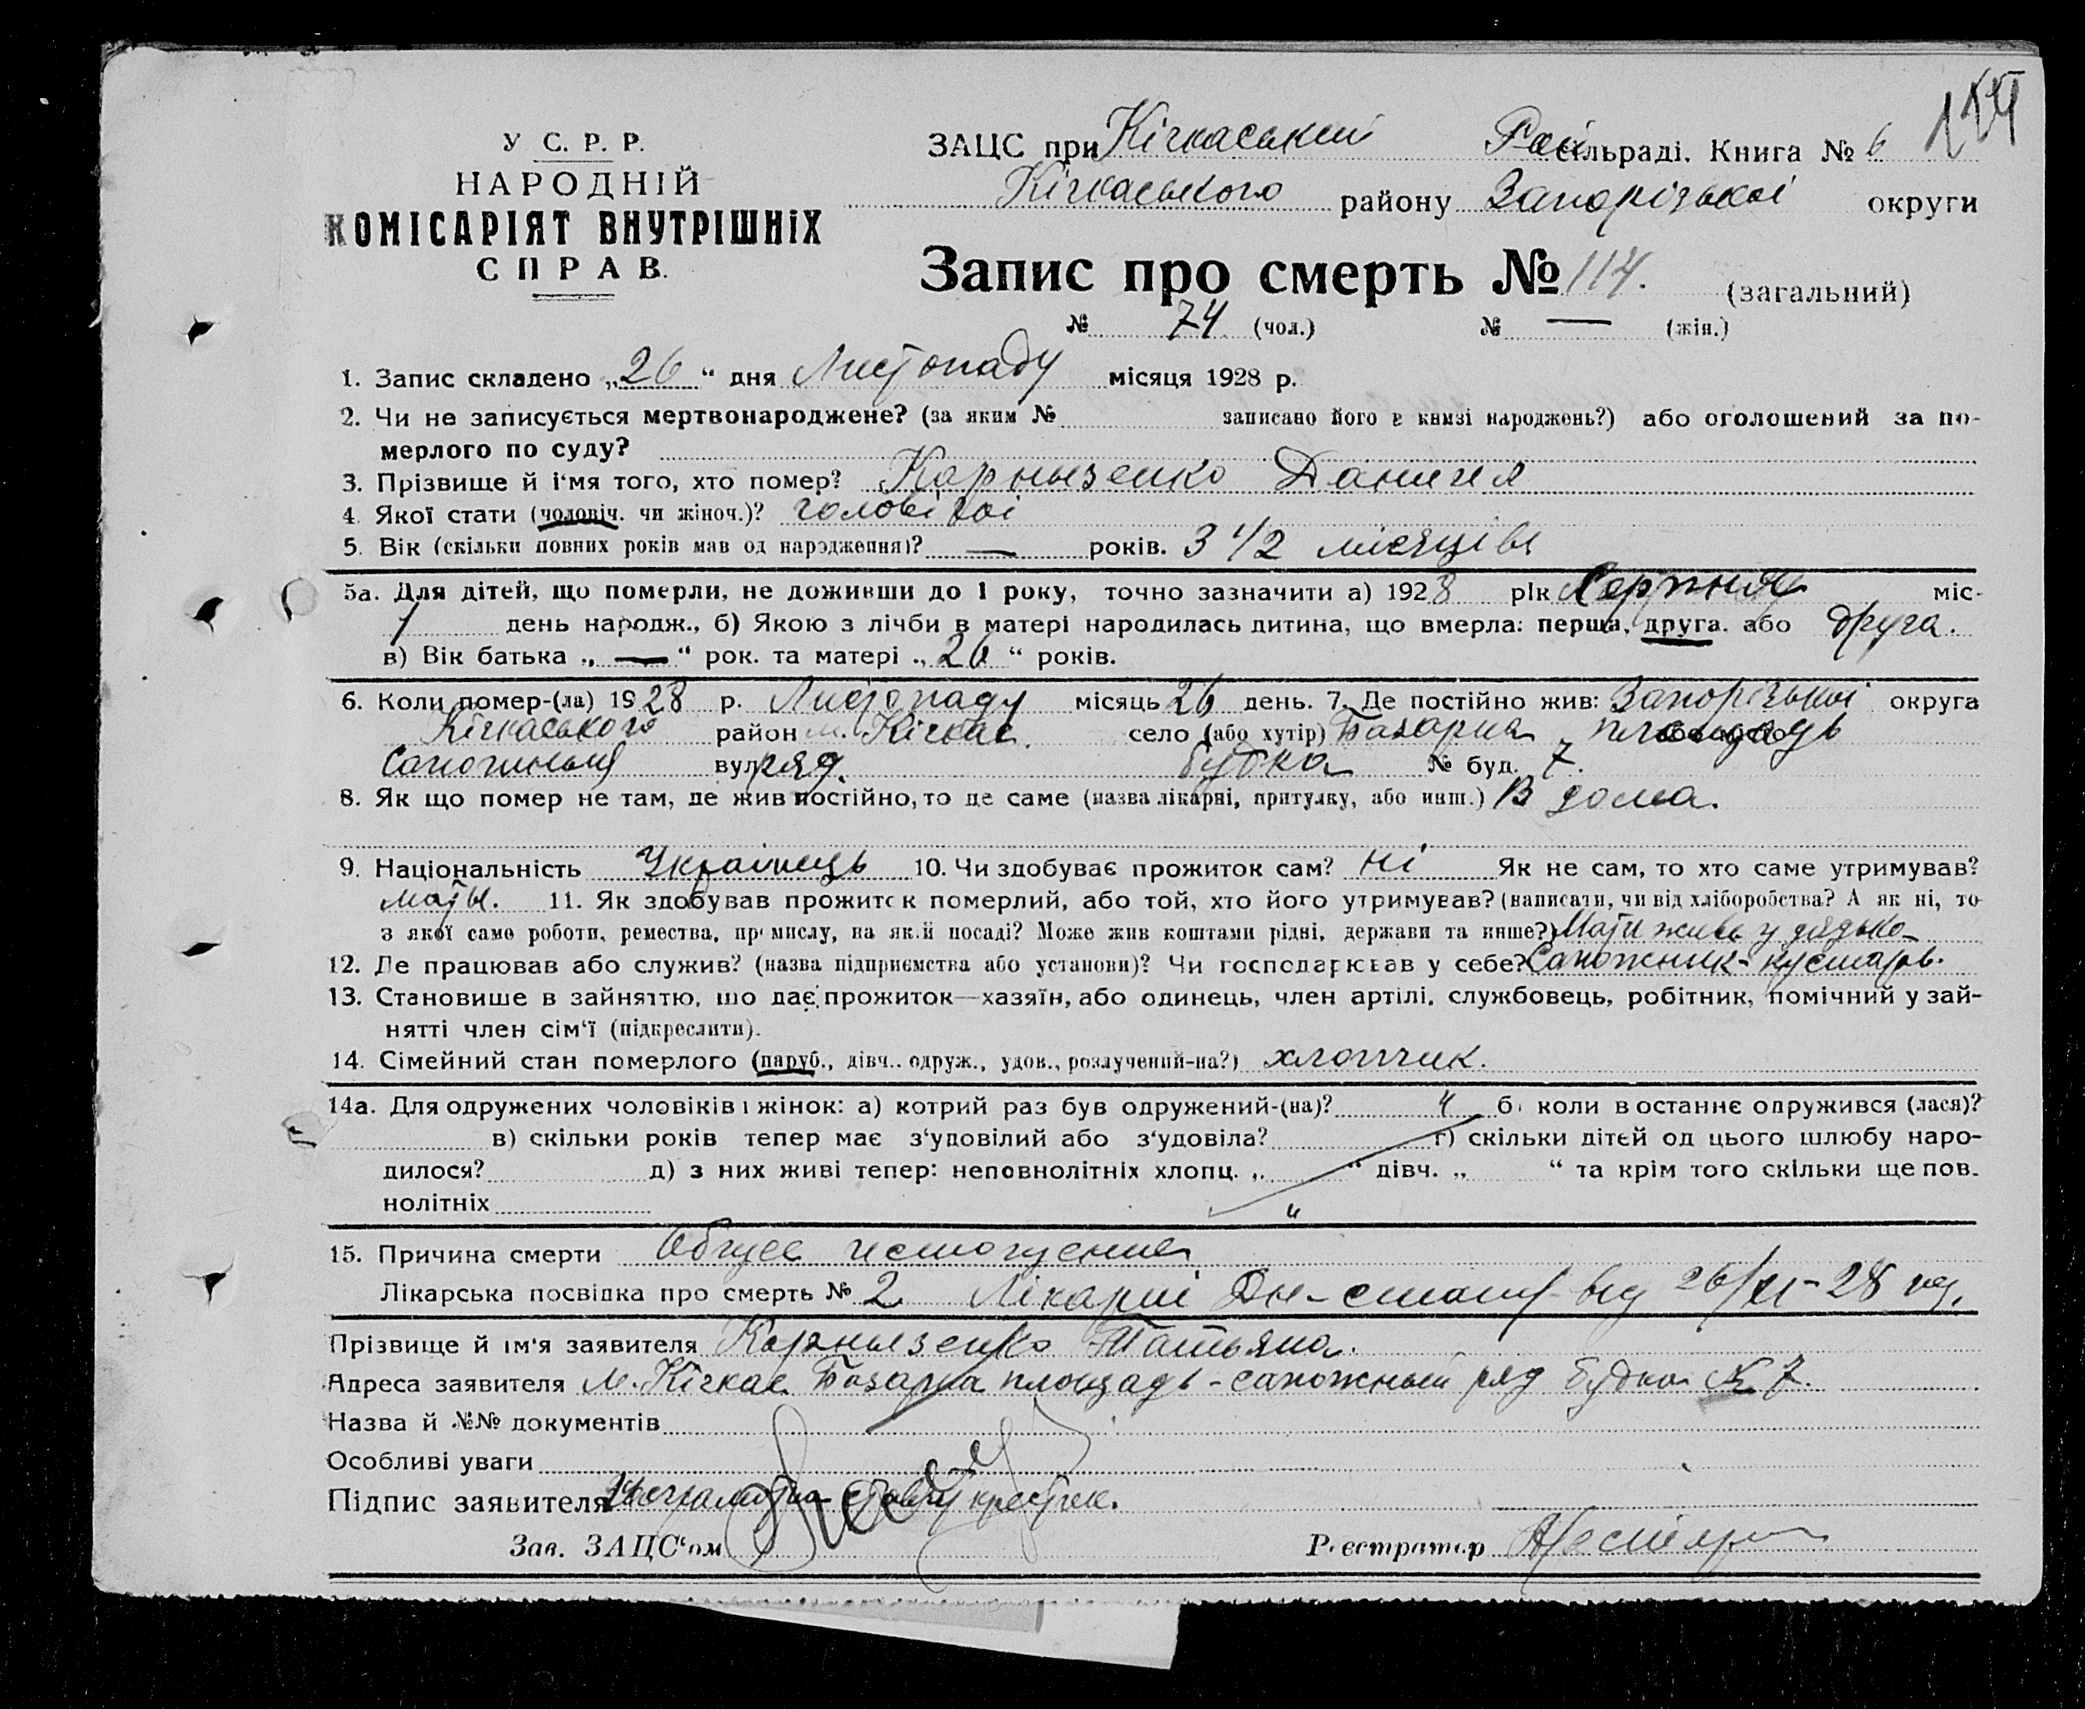 У С. Р. Р.
НАРОДНІЙ
КОМІСАРІЯТ ВНУТРІШНІХ
СПРАВ.
ЗАЦС при Кічкаській Рай сільраді. Книга № 6
Кічкаського району Запорізької округи
Запис про смерть № 114. (загальний)
№ 74 (чол.) № — (жін.)
1. Запис складено „26“ дня Листопаду місяця 1928 р.
2. Чи не записується мертвонароджене? (за яким № записано його в книзі народжень?) або оголошений за по-
мерлого по суду?
3. Прізвище й і'мя того, хто помер? Карнызенко Даниил
4. Якої стати (чоловіч. чи жіноч.)? чоловічої
5. Вік (скільки повних років мав од народження)? — років. 3 1/2 місяців
5а. Для дітей, що померли, не доживши до 1 року, точно зазначити а) 1928 рік Серпня міс.
1 день народж., б) Якою з лічби в матері народилась дитина, що вмерла: перша, друга. або друга.
в) Вік батька „—“ рок. та матері „26“ років.
6. Коли помер-(ла) 1928 р. Листопаду місяць 26 день. 7. Де постійно жив: Запорізької округа
Кічкаського район м. Кічкас. село (або хутір) Базарна площадь
Сапожный вул. ряд. будка № буд. 7.
8. Як що помер не там, де жив постійно, то де саме (назва лікарні, притулку, або инш.) В дома.
9. Національність Українець 10. Чи здобуває прожиток сам? Ні Як не сам, то хто саме утримував?
маты. 11. Як здобував прожиток померлий, або той, хто його утримував? (написати, чи від хліборобства? А як ні, то
з якої саме роботи, ремества, промислу, на якій посаді? Може жив коштами рідні, держави та инше?) Мати живе у дядько-
12. Де працював або служив? (назва підприємства або установи)? Чи господарював у себе? Сапожник-кустарь.
13. Становище в зайняттю, що дає прожиток—хазяїн, або одинець, член артілі, службовець, робітник, помічний у зай-
нятті член сім'ї (підкреслити).
14. Сімейний стан померлого (паруб., дівч.. одруж., удов., розлучений-на?) хлопчик.
14а. Для одружених чоловіків і жінок: а) котрий раз був одружений-(на)? б) коли в останнє одружився (лася)?
в) скільки років тепер має з'удовілий або з'удовіла? г) скільки дітей од цього шлюбу наро-
дилося? д) з них живі тепер: неповнолітніх хлопц. „ “ дівч. „ “ та крім того скільки ще пов-
нолітніх
15. Причина смерти Общее истощение
Лікарська посвідка про смерть № 2 Лікарні Дн- від 26/XI-28
Прізвище й ім'я заявителя Карнызенко Татьяна.
Адреса заявителя м. Кічкас Базарна площадь - сапожный ряд будка № 7.
Назва й №№ документів
Особливі уваги
Підпис заявителя Неграмотна
Зав. ЗАЦС'ом
Реєстратор